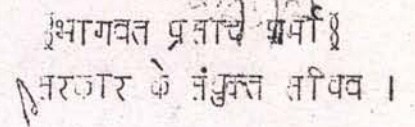 ॥भागवत प्रसाद शर्मा॥
सरकार के संयुक्त सचिव ।